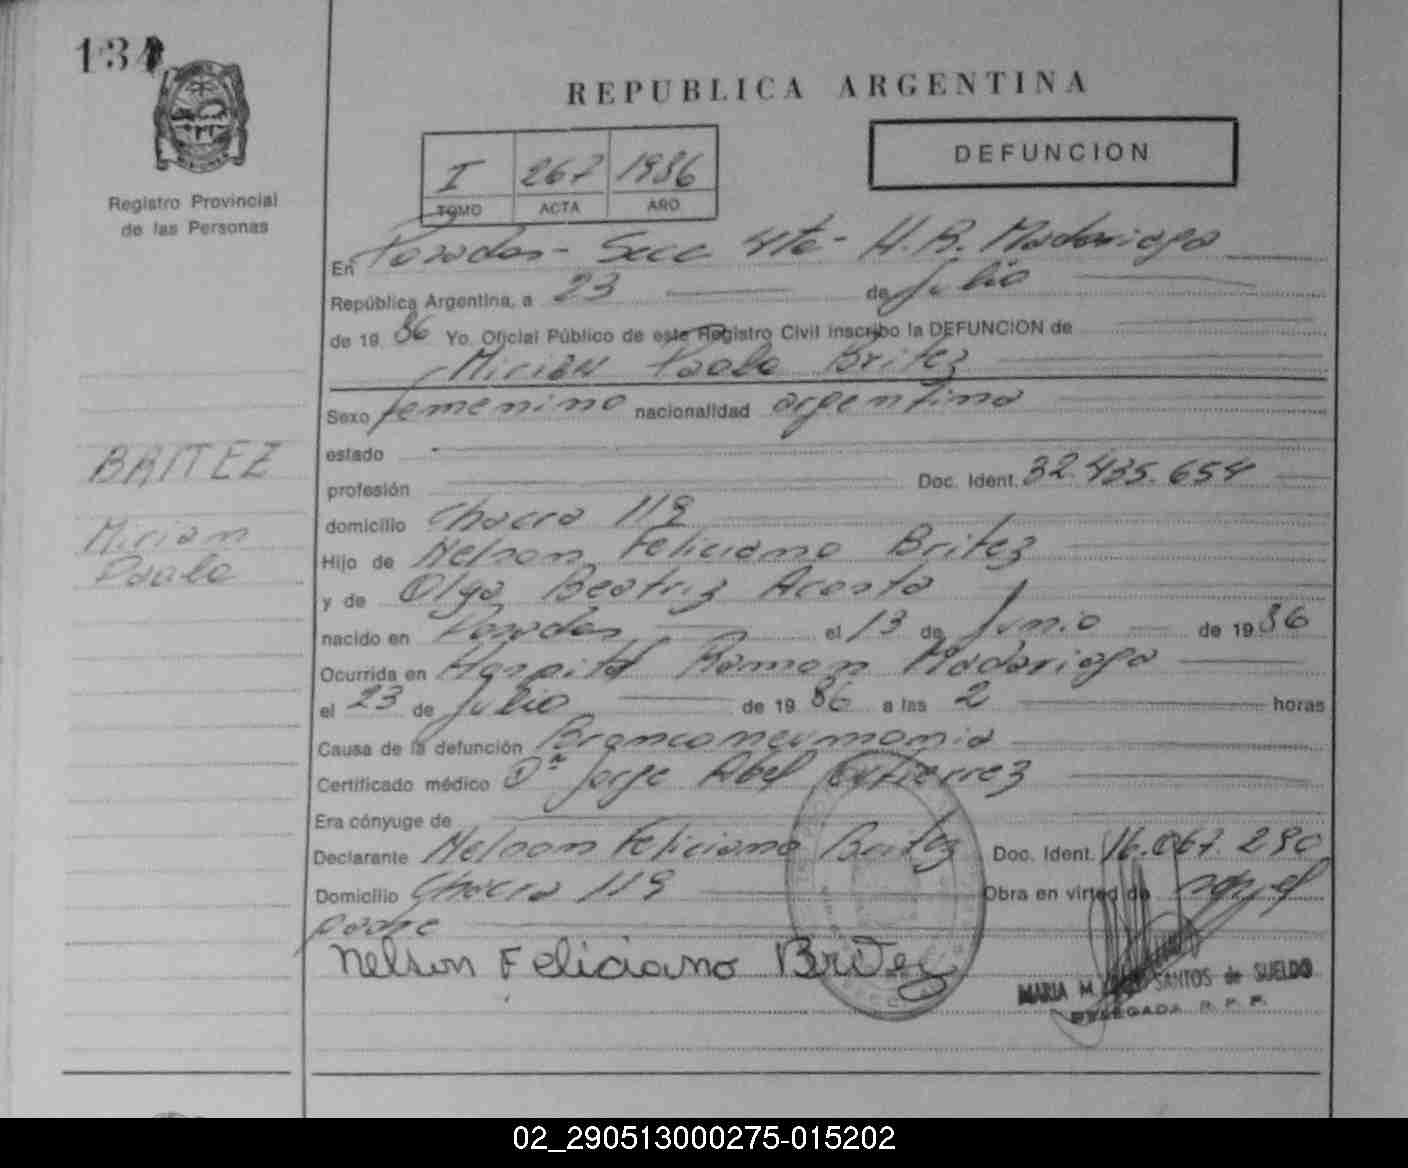 134
Registro Provincial
de las Personas
REPUBLICA ARGENTINA
I 267 1986
TOMO ACTA AÑO
DEFUNCION
En Posadas - Secc 4ta - H. R. Madariaga
República Argentina, a 23 de Julio
de 19 86 Yo, Oficial Público de este Registro Civil inscribo la DEFUNCION de
Mirian Paola Britez
Sexo femenino nacionalidad argentina
estado
profesión Doc. Ident. 32.435.654
domicilio Chacra 119
Hijo de Nelson Feliciano Britez
y de Olga Beatriz Acosta
nacido en Posadas el 13 de Junio de 19 86
Ocurrida en Hospital Ramon Madariaga
el 23 de Julio de 19 86 a las 2 horas
Causa de la defunción Bronconeumonia
Certificado médico Dr Jorge Abel Gutierrez
Era cónyuge de
Declarante Nelson Feliciano Britez Doc. Ident. 16.067.290
Domicilio Chacra 119 Obra en virtud de ser el
padre
Nelson Feliciano Britez
MARIA M. SANTOS de SUELDO
DELEGADA R. P. P.
BRITEZ
Miriam
Paola
02_290513000275-015202